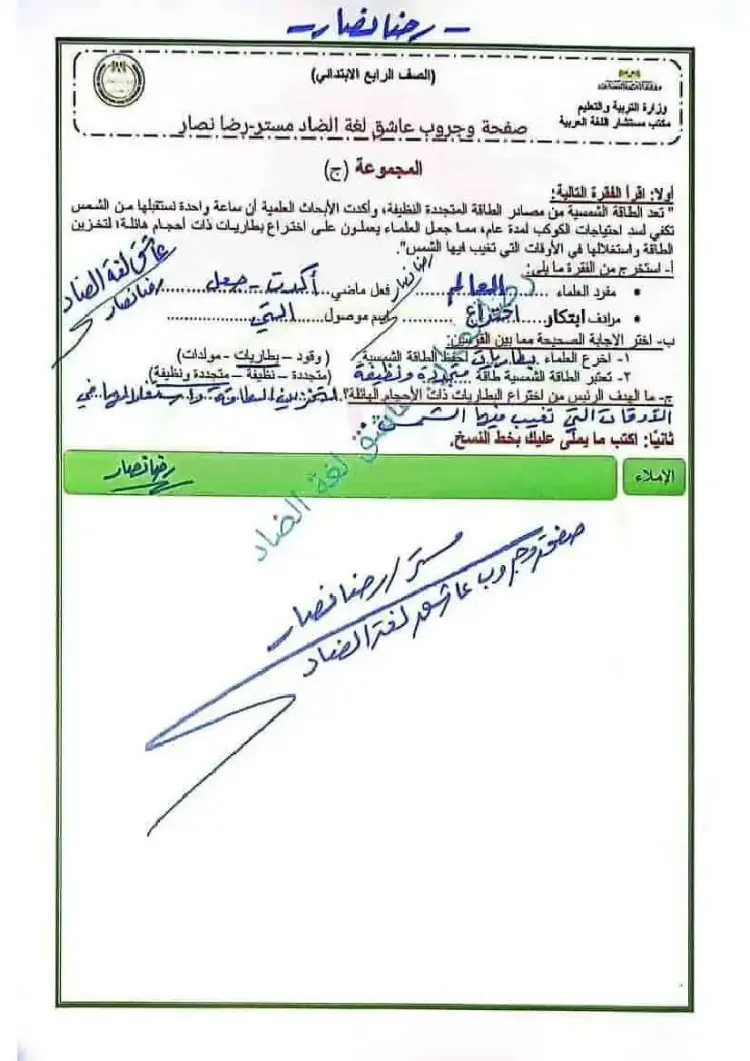 - رضا نصار -
(الصف الرابع الابتدائي)
وزارة التربية والتعليم
مكتب مستشار اللغة العربية
صفحة وجروب عاشق لغة الضاد مستر-رضا نصار
المجموعة (ج)
أولا: اقرأ الفقرة التالية:
" تعد الطاقة الشمسية من مصادر الطاقة المتجددة النظيفة، وأكدت الأبحاث العلمية أن ساعة واحدة نستقبلها من الشمس
تكفي لسد احتياجات الكوكب لمدة عام، مما جعل العلماء يعملون على اختراع بطاريات ذات أحجام هائلة؛ لتخزين
الطاقة واستغلالها في الأوقات التي تغيب فيها الشمس".
عاشق لغة الضاد
رضا نصار
أ- استخرج من الفقرة ما يلي:
رضا نصار
• مفرد العلماء ......العالم...... فعل ماضي...أكدت - جعل......
• مرادف ابتكار......اختراع...... اسم موصول......التي......
ب- اختر الإجابة الصحيحة مما بين القوسين:
١- اخرع العلماء بطاريات لحفظ الطاقة الشمسية (وقود – بطاريات - مولدات)
٢- تعتبر الطاقة الشمسية طاقة متجددة ونظيفة (متجددة – نظيفة – متجددة ونظيفة)
ج- ما الهدف الرئيس من اختراع البطاريات ذات الأحجام الهائلة؟ لتخزين الطاقة واستغلالها في
الأوقات التي تغيب فيها الشمس
ثانيًا: اكتب ما يملى عليك بخط النسخ.
الإملاء
رضا نصار
عاشق لغة الضاد
مستر/ رضا نصار
صفحة وجروب عاشق لغة الضاد